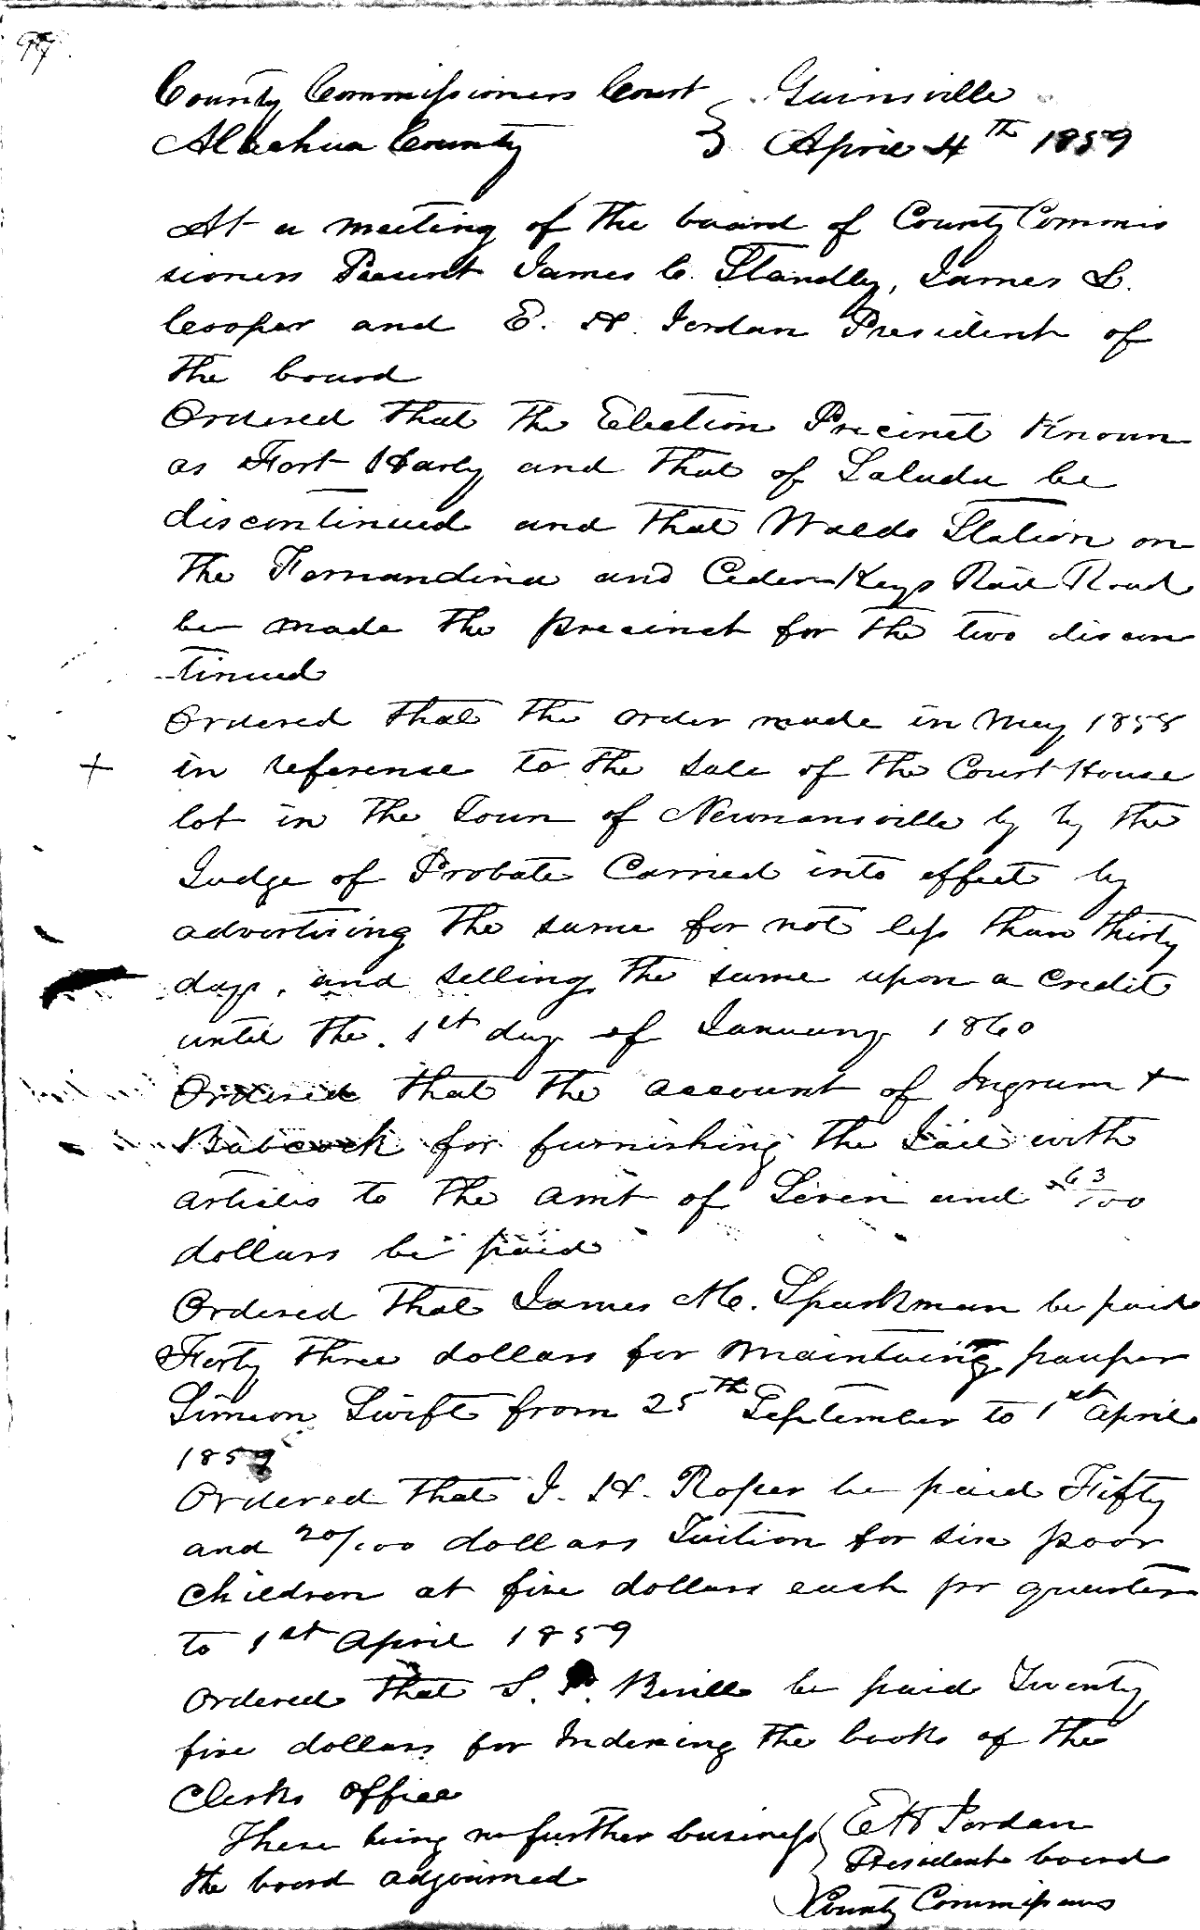 97
County Commissioners Court } Gainsville
Alachua County } April 4th 1859
At a meeting of the board of County Commis
sioners Present James C. Standly, James L.
Cooper and E. H. Jordan President of
the board
Ordered that the Election Precinct Known
as Fort Harly and that of Saluda be
discontinued and that Waldo Station on
the Fernandina and Ceder Keys Rail Road
be made the precinct for the two discon
tinued
Ordered that the order made in May 1858
+ in reference to the sale of the Court House
lot in the Town of Newnansville by by the
Judge of Probate Carried into effect by
advertising the same for not less than thirty
days, and selling the same upon a credit
until the 1st day of January 1860
Ordered that the account of Ingram +
Babcock for furnishing the Jail with
articles to the amt of Seven and 63/100
dollars be paid
Ordered that James M. Sparkman be paid
Forty three dollars for maintaining pauper
Simeon Swift from 25th September to 1st April
1859
Ordered that J. H. Roper be paid Fifty
and 20/100 dollars Tuition for six poor
children at five dollars each pr quarter
to 1st April 1859
Ordered that S. Bevill be paid Twenty
five dollars for Indexing the books of the
Clerks office
There being no further business } E H Jordan
the board adjourned } President board
County Commissioners